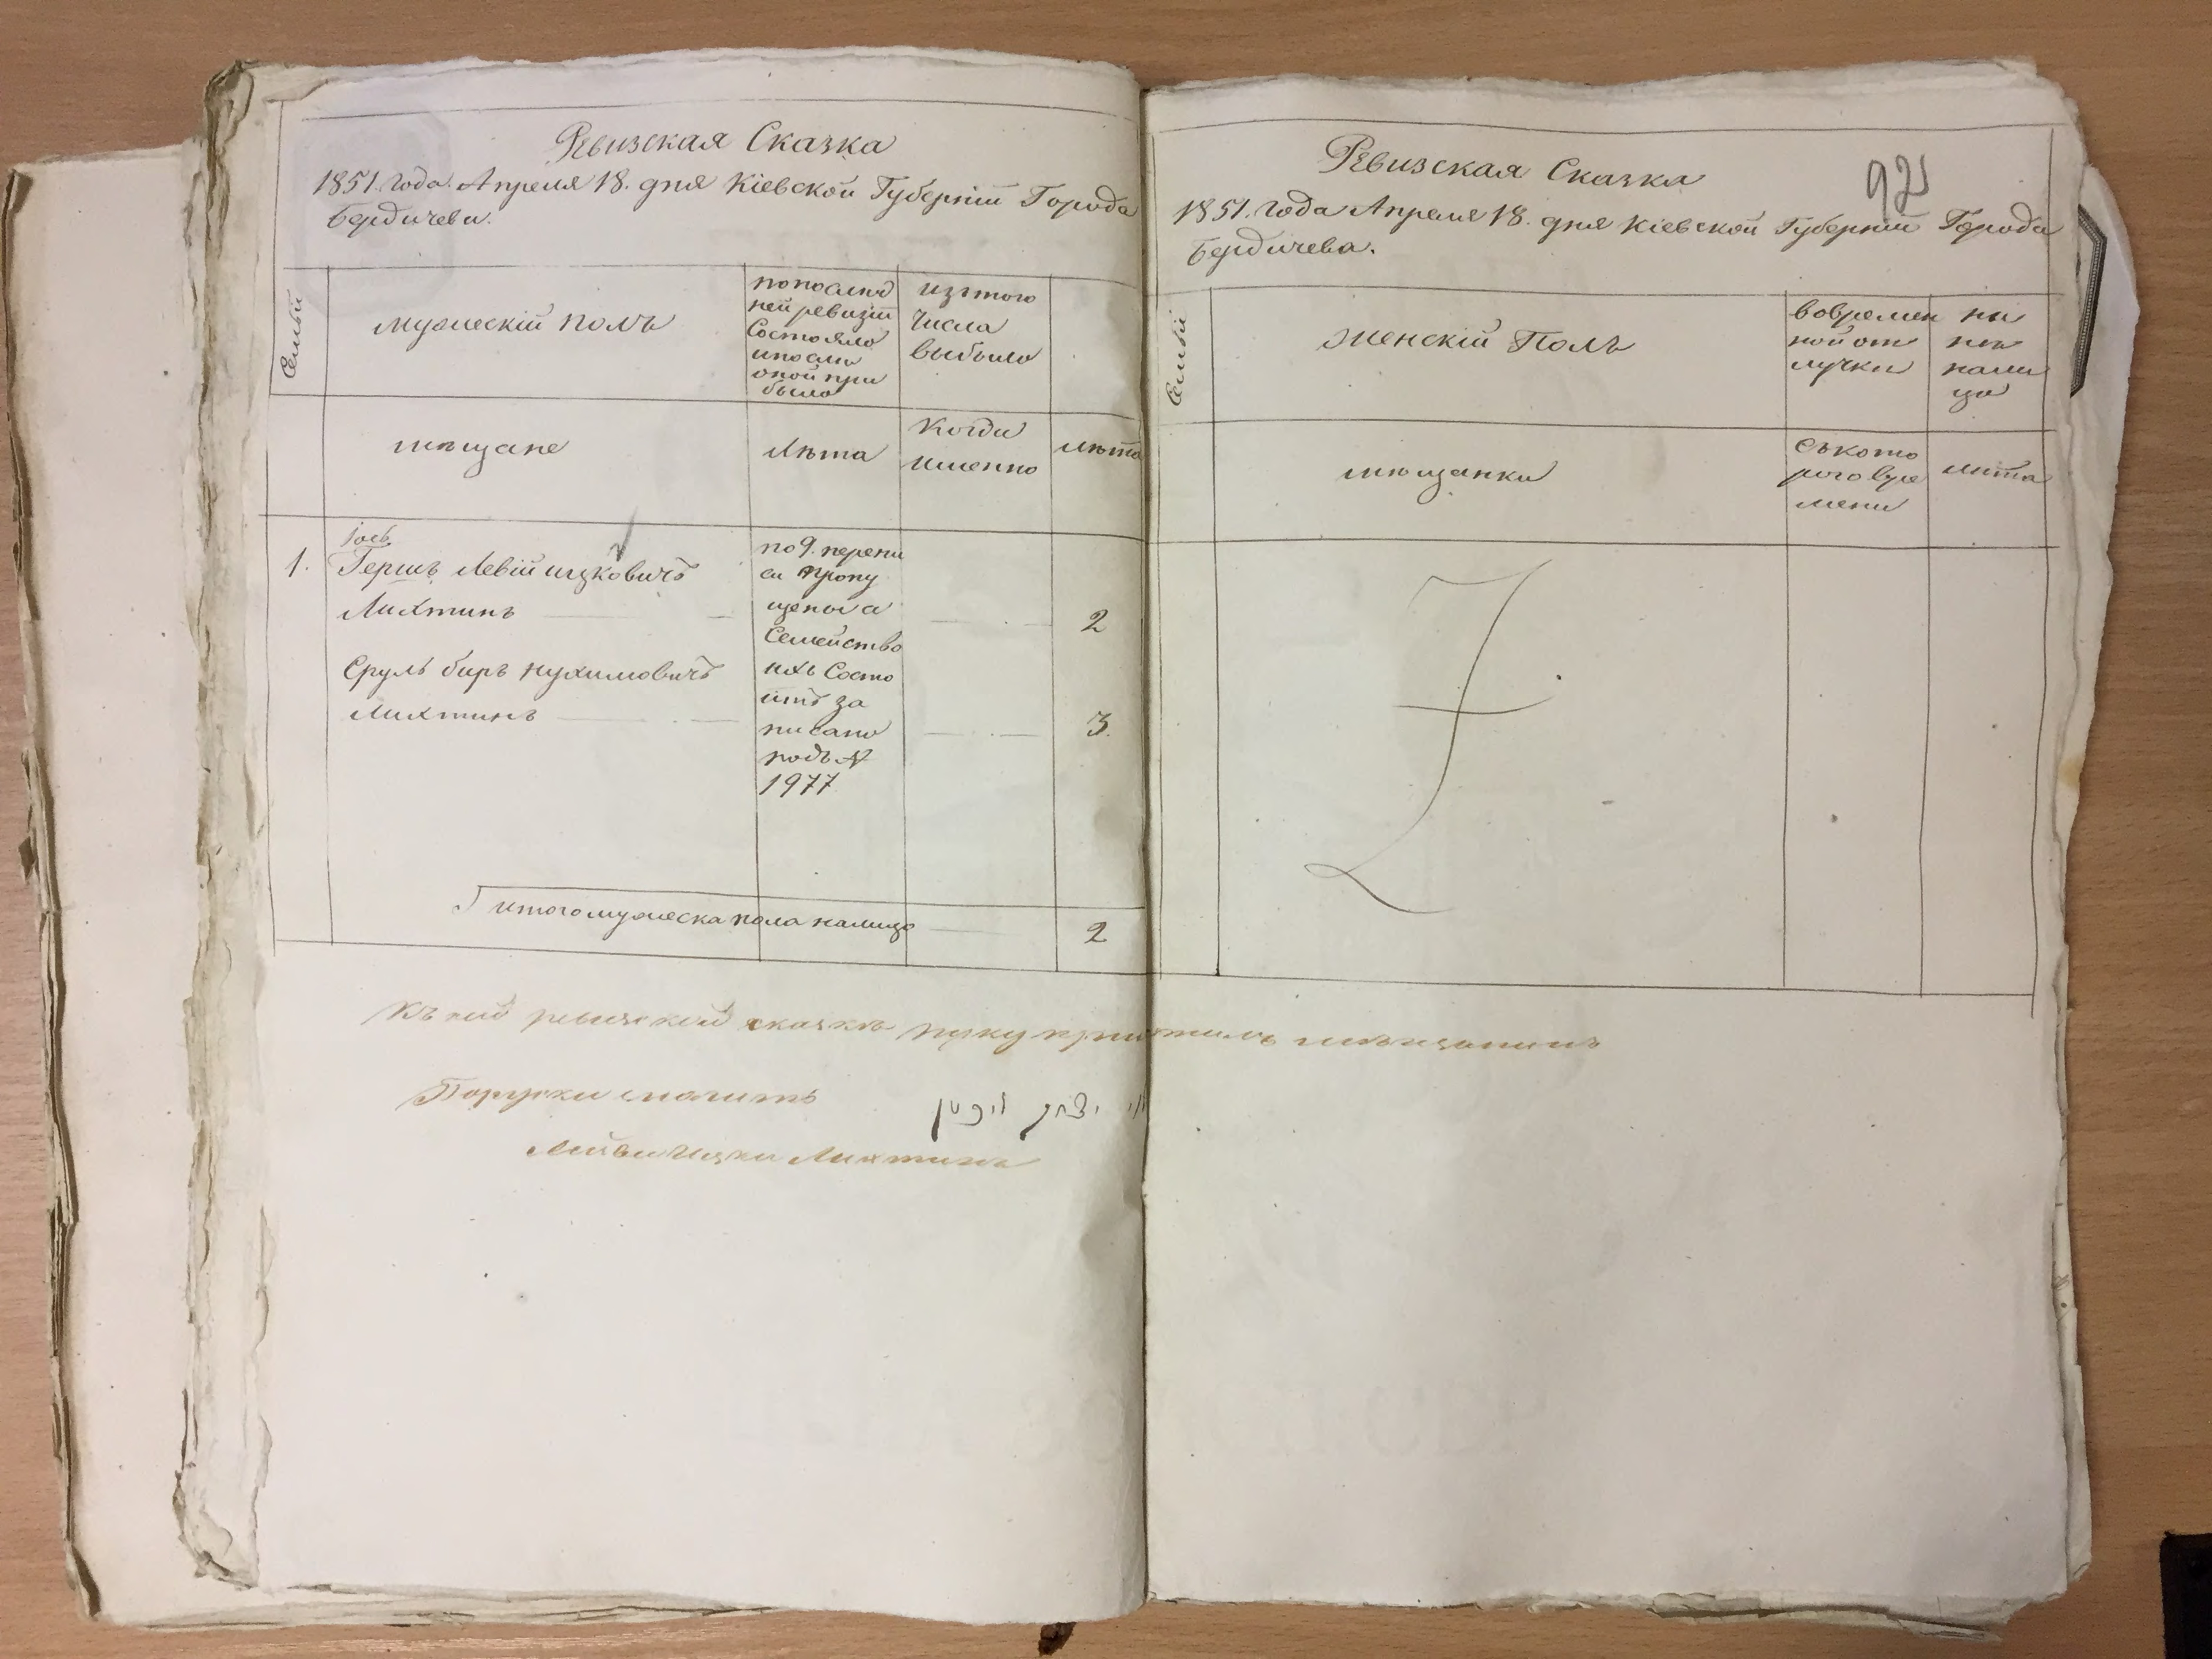 Ревизская Сказка
1851. Года. Апреля 18. дня Кіевской Губерніи Города
Бердичева.
Семьи
мужескій полъ
попослѣд
ней ревизіи
Состояло
ипосли
оной при
было
изтого
Числа
выбыло
мѣщане
Лѣта
Когда
именно
лѣта
1.
Іось
Гершъ Левій ицковичъ
Лихтинъ
по 9. перепи
си пропу
щеного а
Семейство
ихъ Состо
итъ за
писано
подъ №
1977
2
Сруль биръ нухимовичъ
Лихтинъ
3.
итого мужеска пола налицо
2
Ревизская Сказка
925
1851. Года Апреля 18. дня Кіевской Губерніи Города
Бердичева.
Семьи
женскій Полъ
вовремен
ной от
лучки
на
лицо
мѣщанки
Съкото
рого вре
мени
лѣта
Къ сей ревизской сказкѣ руку приложилъ мѣщанинъ
יצחק ליכטין
Лихтинъ